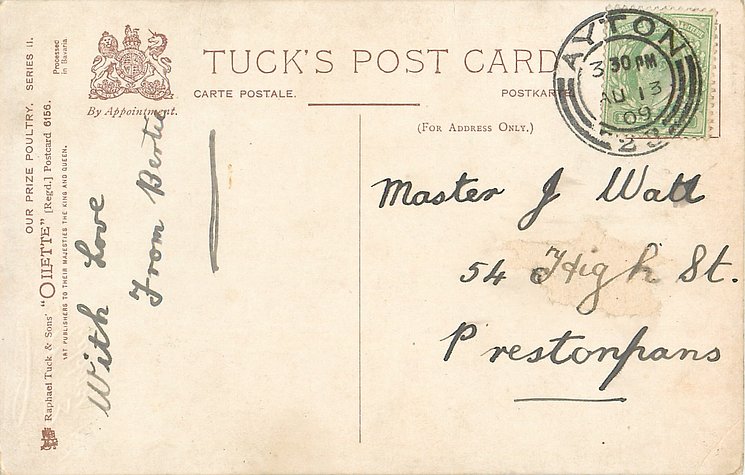 OUR PRIZE POULTRY. SERIES II.
Raphael Tuck & Sons' "OILETTE" [Regd.] Postcard 6156.
ART PUBLISHERS TO THEIR MAJESTIES THE KING AND QUEEN.
Processed
in Bavaria
By Appointment.
TUCK'S POST CARD
CARTE POSTALE.
POSTKARTE
(FOR ADDRESS ONLY.)
AYTON
3 30 PM
AU 13
09
With Love
From Bertie
Master J Watt
54 High St.
Prestonpans